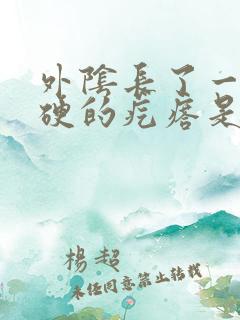 外陰長了一
硬的疙瘩是
楊超
未經同意禁止轉載